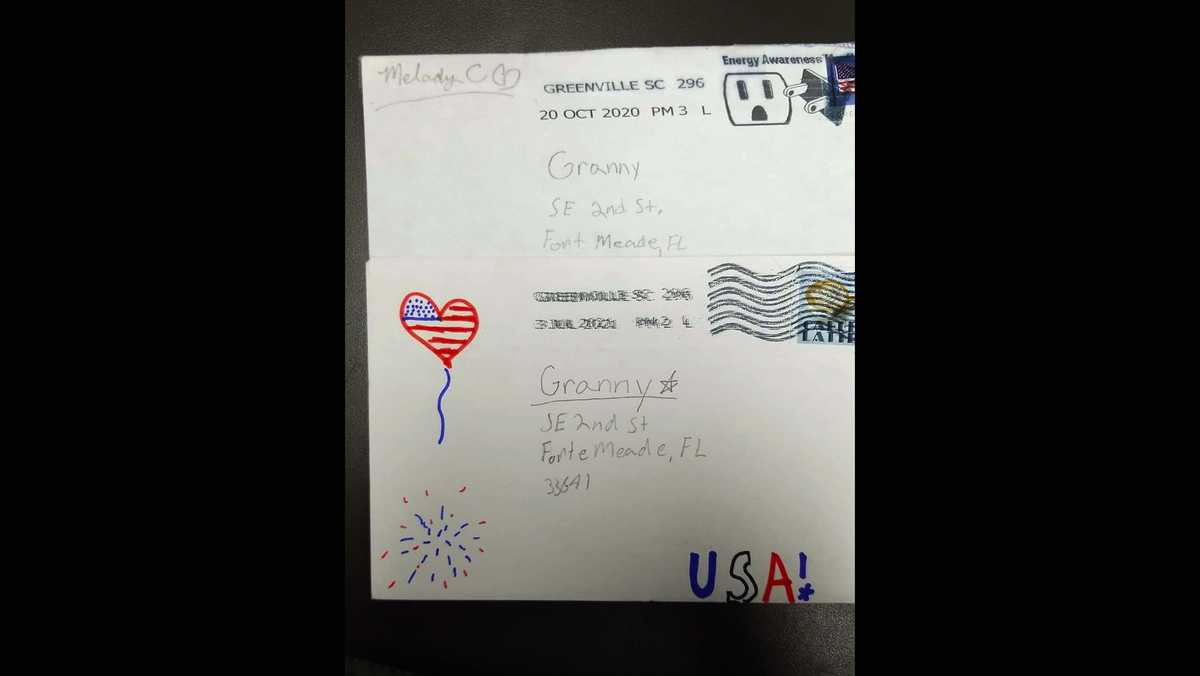 Melady C
Energy Awareness
GREENVILLE SC 296
20 OCT 2020 PM 3 L
Granny
SE 2nd St.
Font Meade, FL
GREENVILLE SC 296
2021 PM 2 L
Granny
SE 2nd St
Forte Meade, FL
33841
USA!